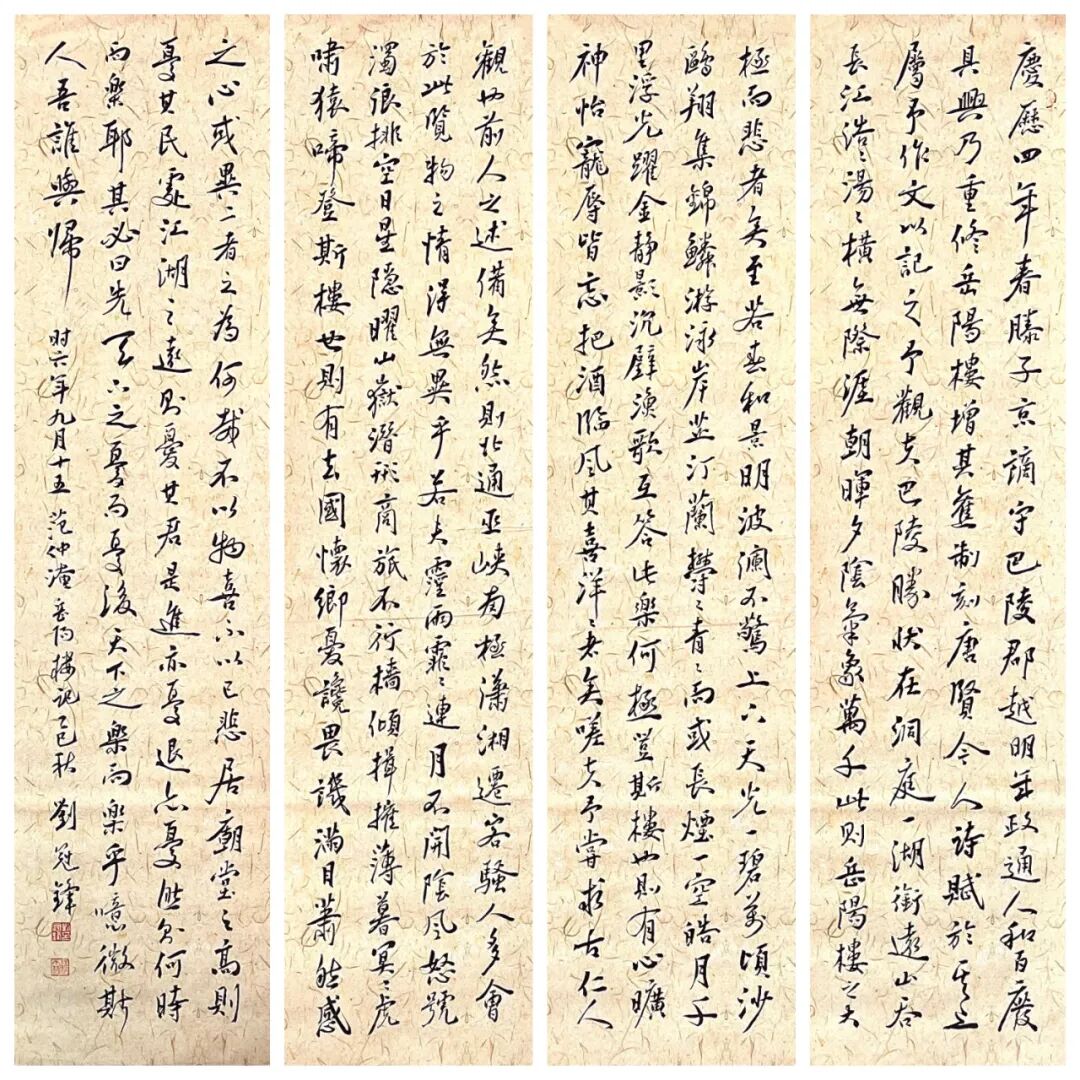 慶歷四年春滕子京謫守巴陵郡越明年政通人和百廢
具興乃重修岳陽樓增其舊制刻唐賢今人詩賦於其上
屬予作文以記之予觀夫巴陵勝狀在洞庭一湖銜遠山吞
長江浩〻湯〻橫無際涯朝暉夕陰氣象萬千此則岳陽樓之大
觀也前人之述備矣然則北通巫峽南極瀟湘遷客騷人多會
於此覽物之情得無異乎若夫霪雨霏〻連月不開陰風怒號
濁浪排空日星隱曜山嶽潛形商旅不行檣傾揖摧薄暮冥〻虎
嘯猿啼登斯樓也則有去國懷鄉憂讒畏譏滿目蕭然感
極而悲者矣至若春和景明波瀾不驚上下天光一碧萬頃沙
鷗翔集錦鱗游泳岸芷汀蘭鬱〻青〻而或長煙一空皓月千
里浮光躍金靜影沉璧漁歌互答此樂何極登斯樓也則有心曠
神怡寵辱皆忘把酒臨風其喜洋〻者矣嗟夫予嘗求古仁人
之心或異二者之為何哉不以物喜不以己悲居廟堂之高則
憂其民處江湖之遠則憂其君是進亦憂退亦憂然則何時
而樂耶其必曰先天下之憂而憂後天下之樂而樂乎噫微斯
人吾誰與歸 时六年九月十五 范仲淹岳陽樓記乙巳秋 劉冠鋒